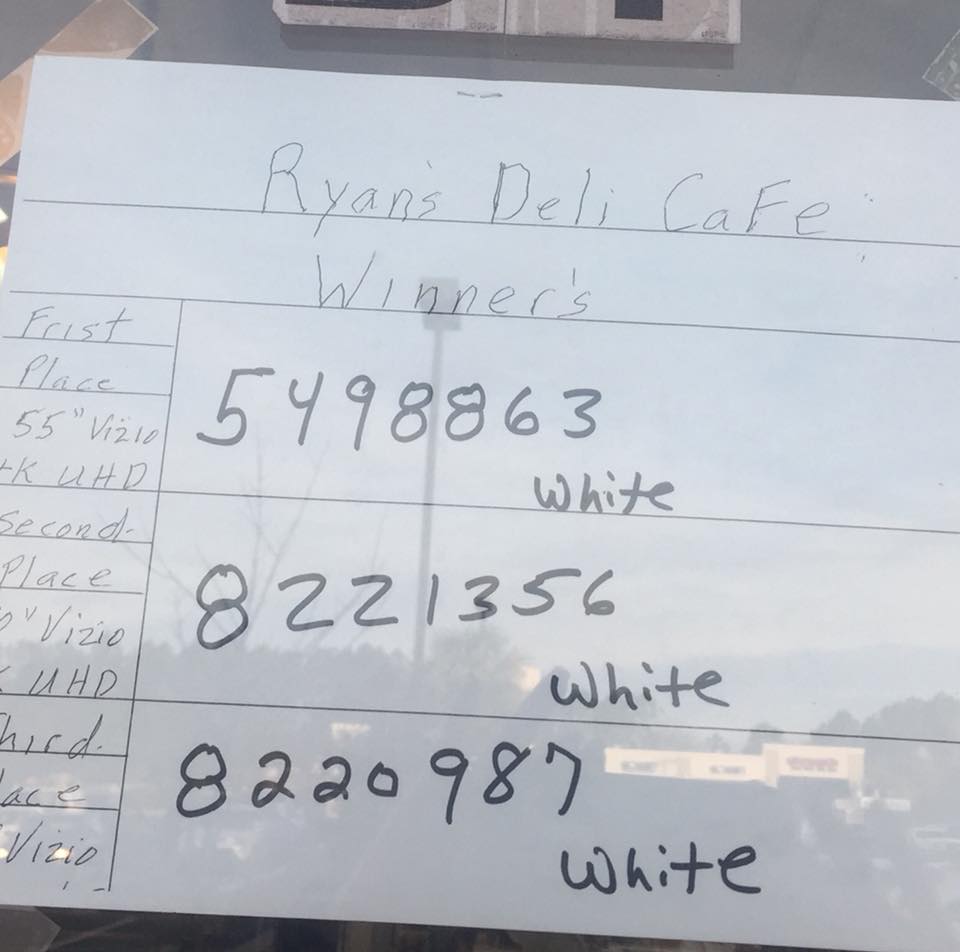 Ryan's Deli CaFe
Winner's
Frist
Place
55" Vizio
UHD
5498863
White
Second
Place
Vizio
UHD
8221356
White
8220987
White
Vizio